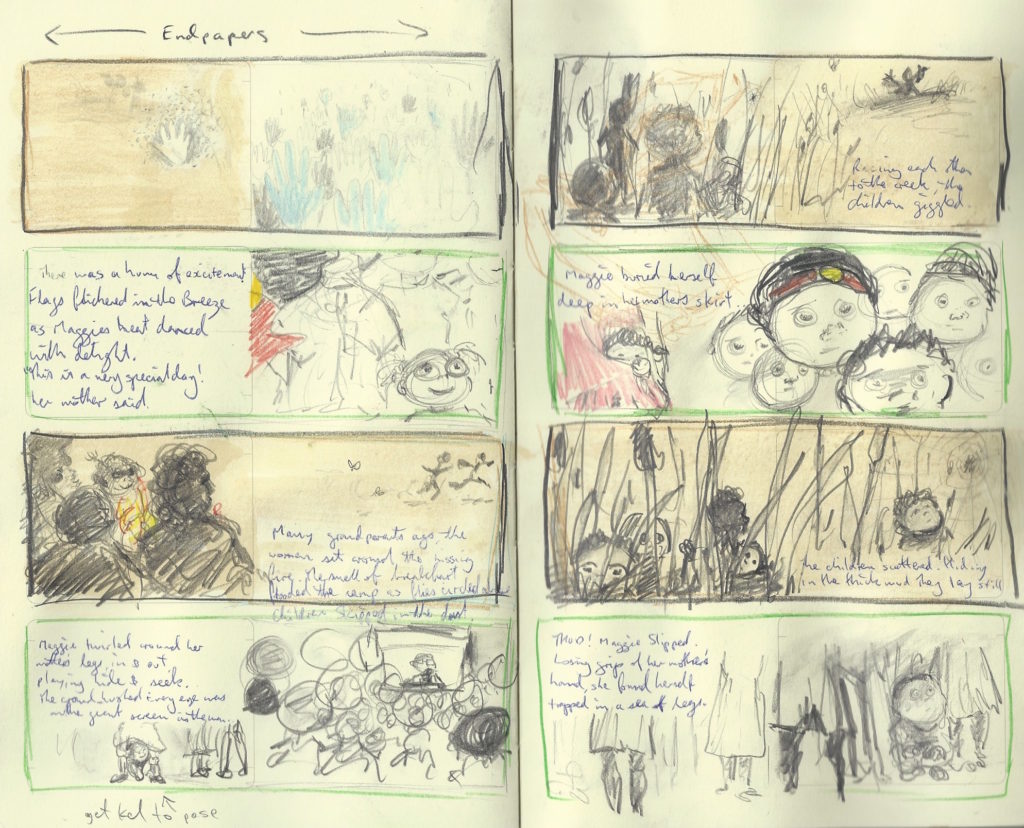 Endpapers
There was a hum of excitement
Flags flickered in the Breeze
as Maggies heart danced
with delight.
"This is a very special day!
her mother said.
Many grandparents ago, the
women sat around the hissing
fire. The smell of
flooded the camp as flies circled and
children skipped in the dust.
Maggie twirled around her
mothers legs, in & out
playing hide & seek.
The crowd hushed Every eye was
on the giant screen
get Kel to pose
Racing each other
to the creek, the
children giggled.
Maggie buried herself
deep in her mothers skirt.
The children scattered! Hiding
in the thick mud they lay still
THUD! Maggie Slipped.
Losing grip of her mothers
hand, she found herself
trapped in a sea of legs.